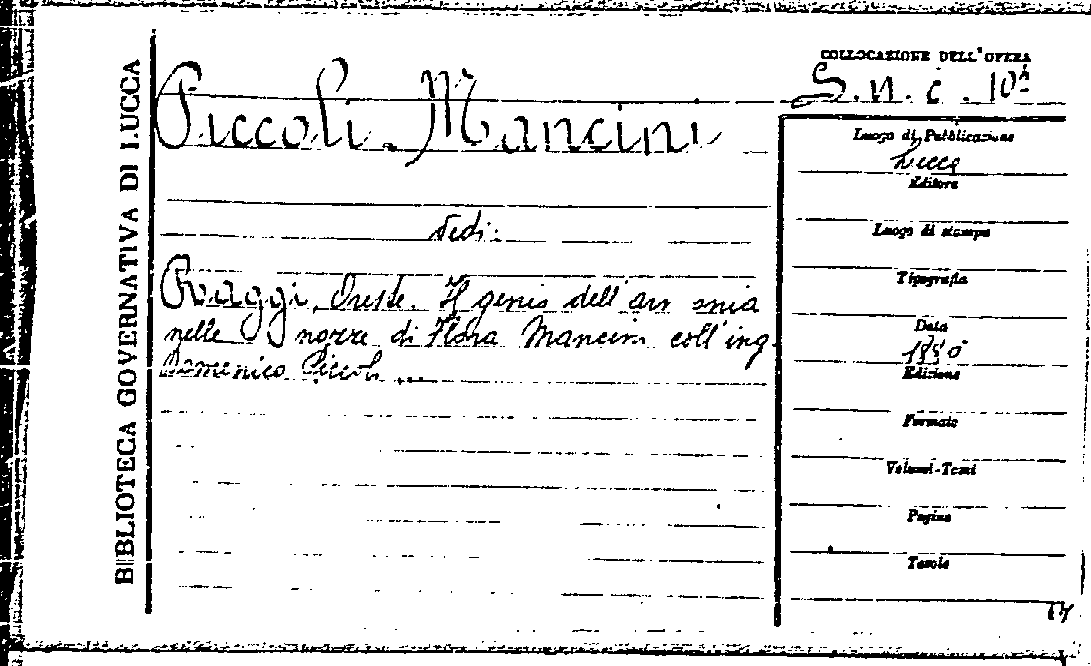 BIBLIOTECA GOVERNATIVA DI LUCCA
Piccoli. Mancini
Vedi:
Raggi, Oreste. Il genio dell'armonia
nelle nozze di Flora Mancini coll'ing.
Domenico Piccoli ...
COLLOCAZIONE DELL'OPERA
S. n. c. 10
Luogo di Pubblicazione
Lucca
Editore
Luogo di stampa
Tipografia
Data
Edizione
Formato
Volumi-Tomi
Pagine
Tavole